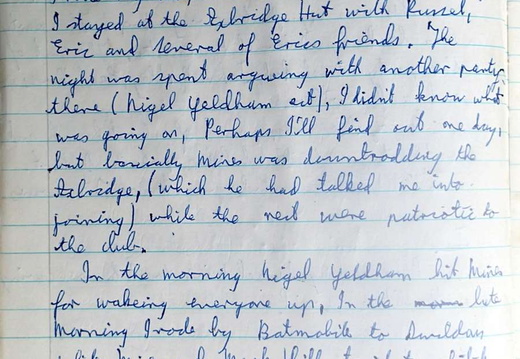 I stayed at the Axbridge Hut with Russel,
Eric and several of Erics friends. The
night was spent argueing with another party
there (Nigel Yeldham ect), I didn't know what
was going on, Perhaps I'll find out one day,
but bascially Mines was downtrodding the
Axbridge, (which he had talked me into
joining) while the rest were patriotic to
the club.
In the morning Nigel Yeldham hit Mines
for wakeing everyone up, In the late
morning I rode by Batmobile to